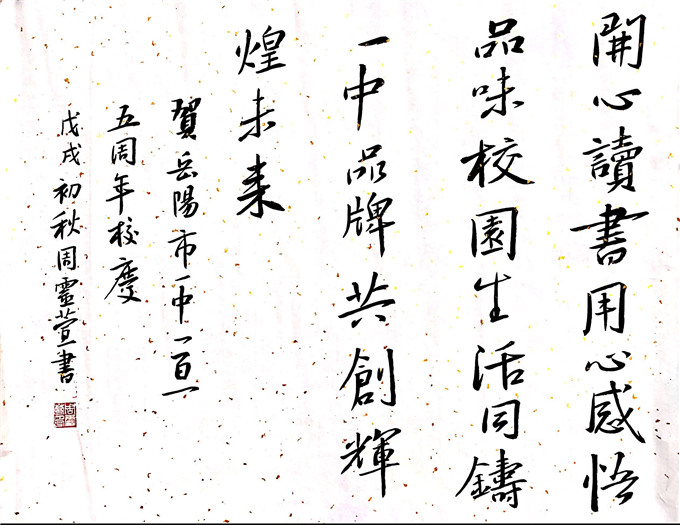 開心讀書用心感悟
品味校園生活同鑄
一中品牌共創輝
煌未来
賀岳陽市一中一百一
五周年校慶
戊戌初秋周靈萱書